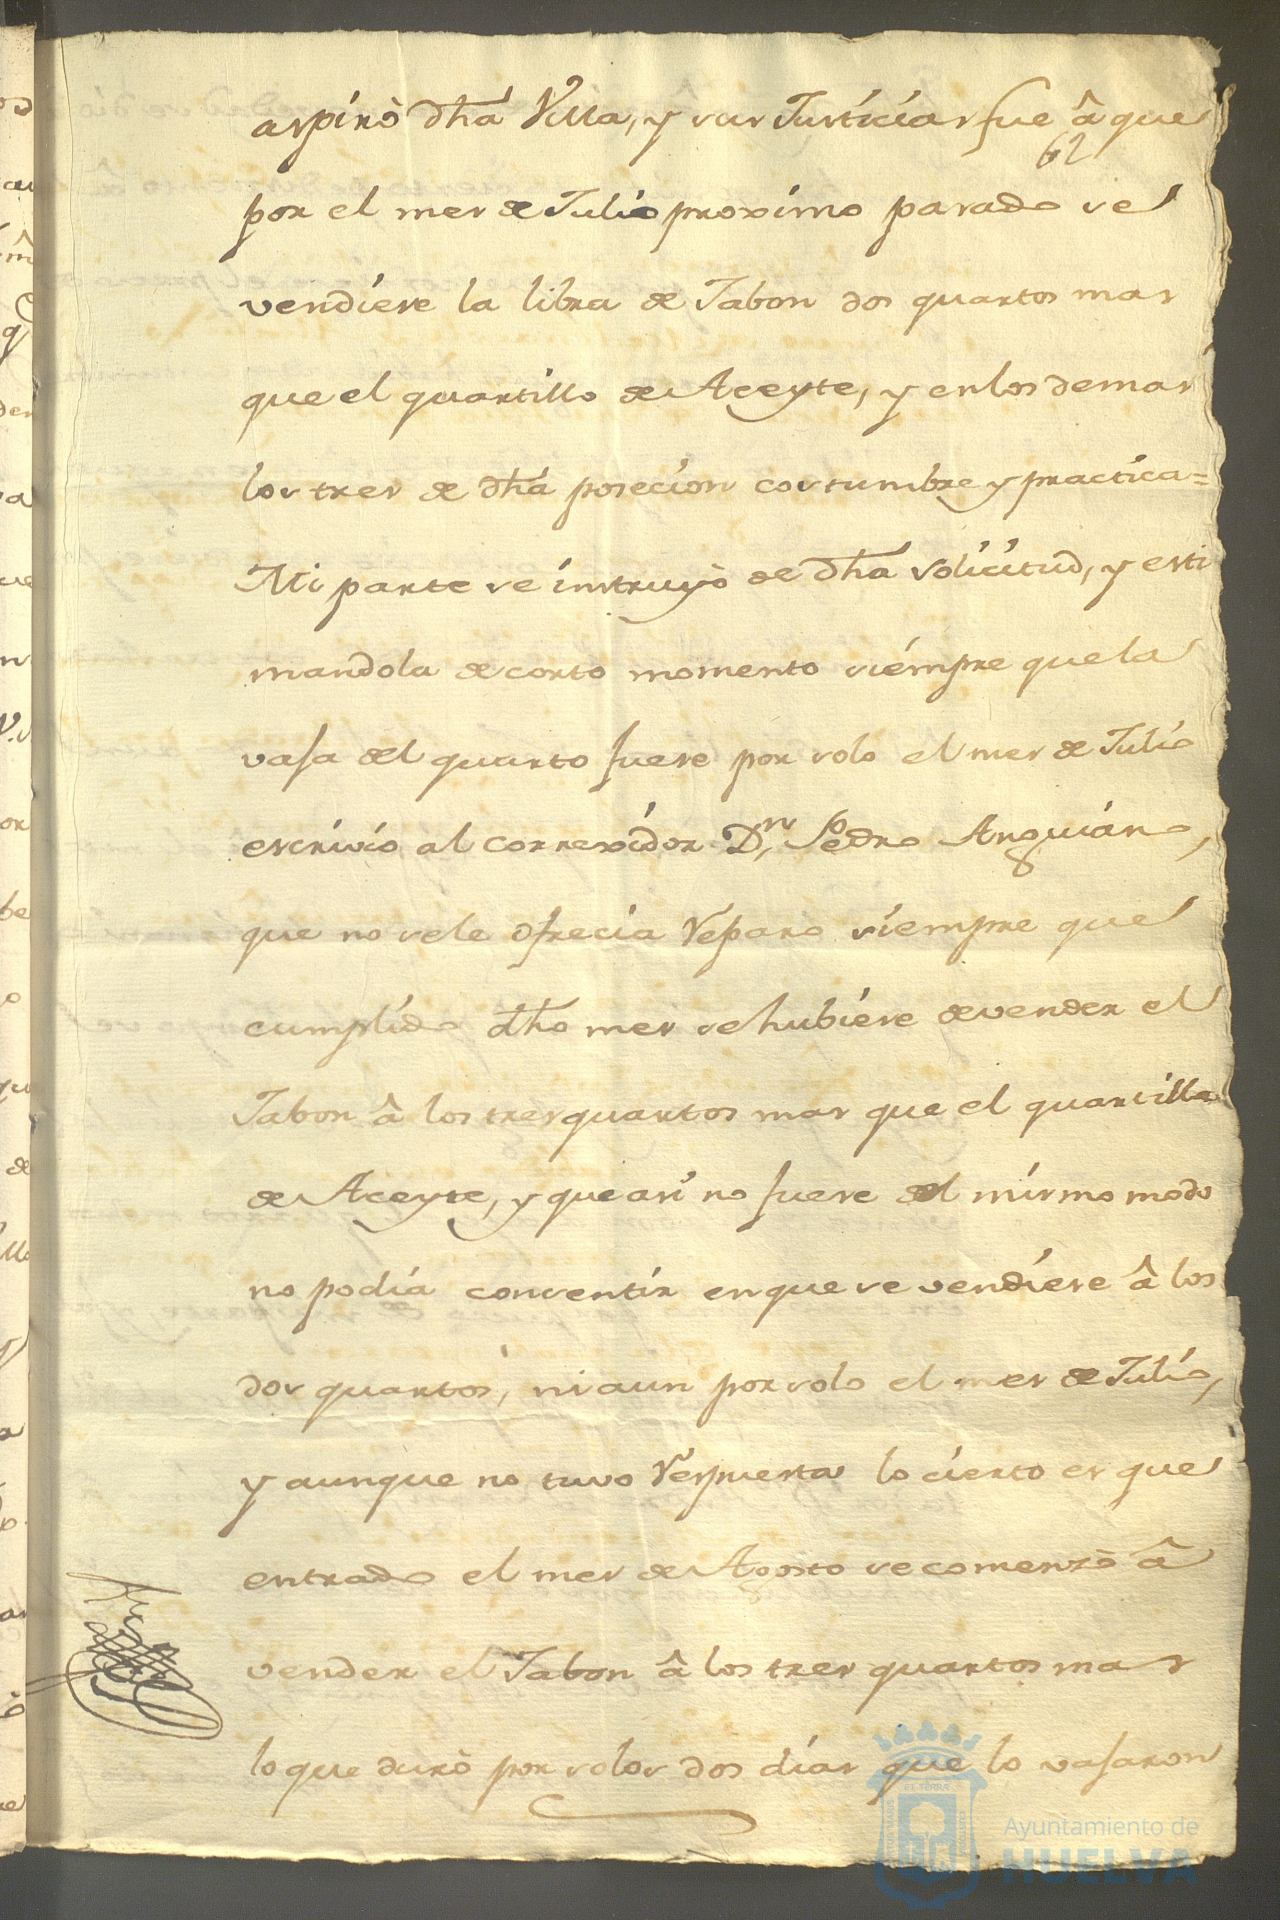 aspirò dha Villa, y sus Justicias fue â que
62
por el mes de Julio proximo pasado se
vendiese la libra de Jabon dos quartos mas
que el quartillo de Aceyte, y en los demas
los tres de dha posecion costumbre y practica=
Mi parte se instruyò de dha solicitud, y esti
mandola de corto momento siempre que la
vaja del quarto fuese por solo el mes de Julio
escrivio al correxidor Dn. Pedro Anguiano,
que no se le ofrecia reparo siempre que
cumplido dho mes se hubiese de vender el
Jabon â los tres quartos mas que el quartillo
de Aceyte, y que asi no fuese del mismo modo
no podia consentir en que se vendiese â los
dos quartos, ni aun por solo el mes de Julio,
y aunque no tuvo respuesta lo cierto es que
entrado el mes de Agosto se comenzò â
vender el Jabon â los tres quartos mas
lo que durò por solos dos dias que lo vajaron
Ayuntamiento de
HUELVA